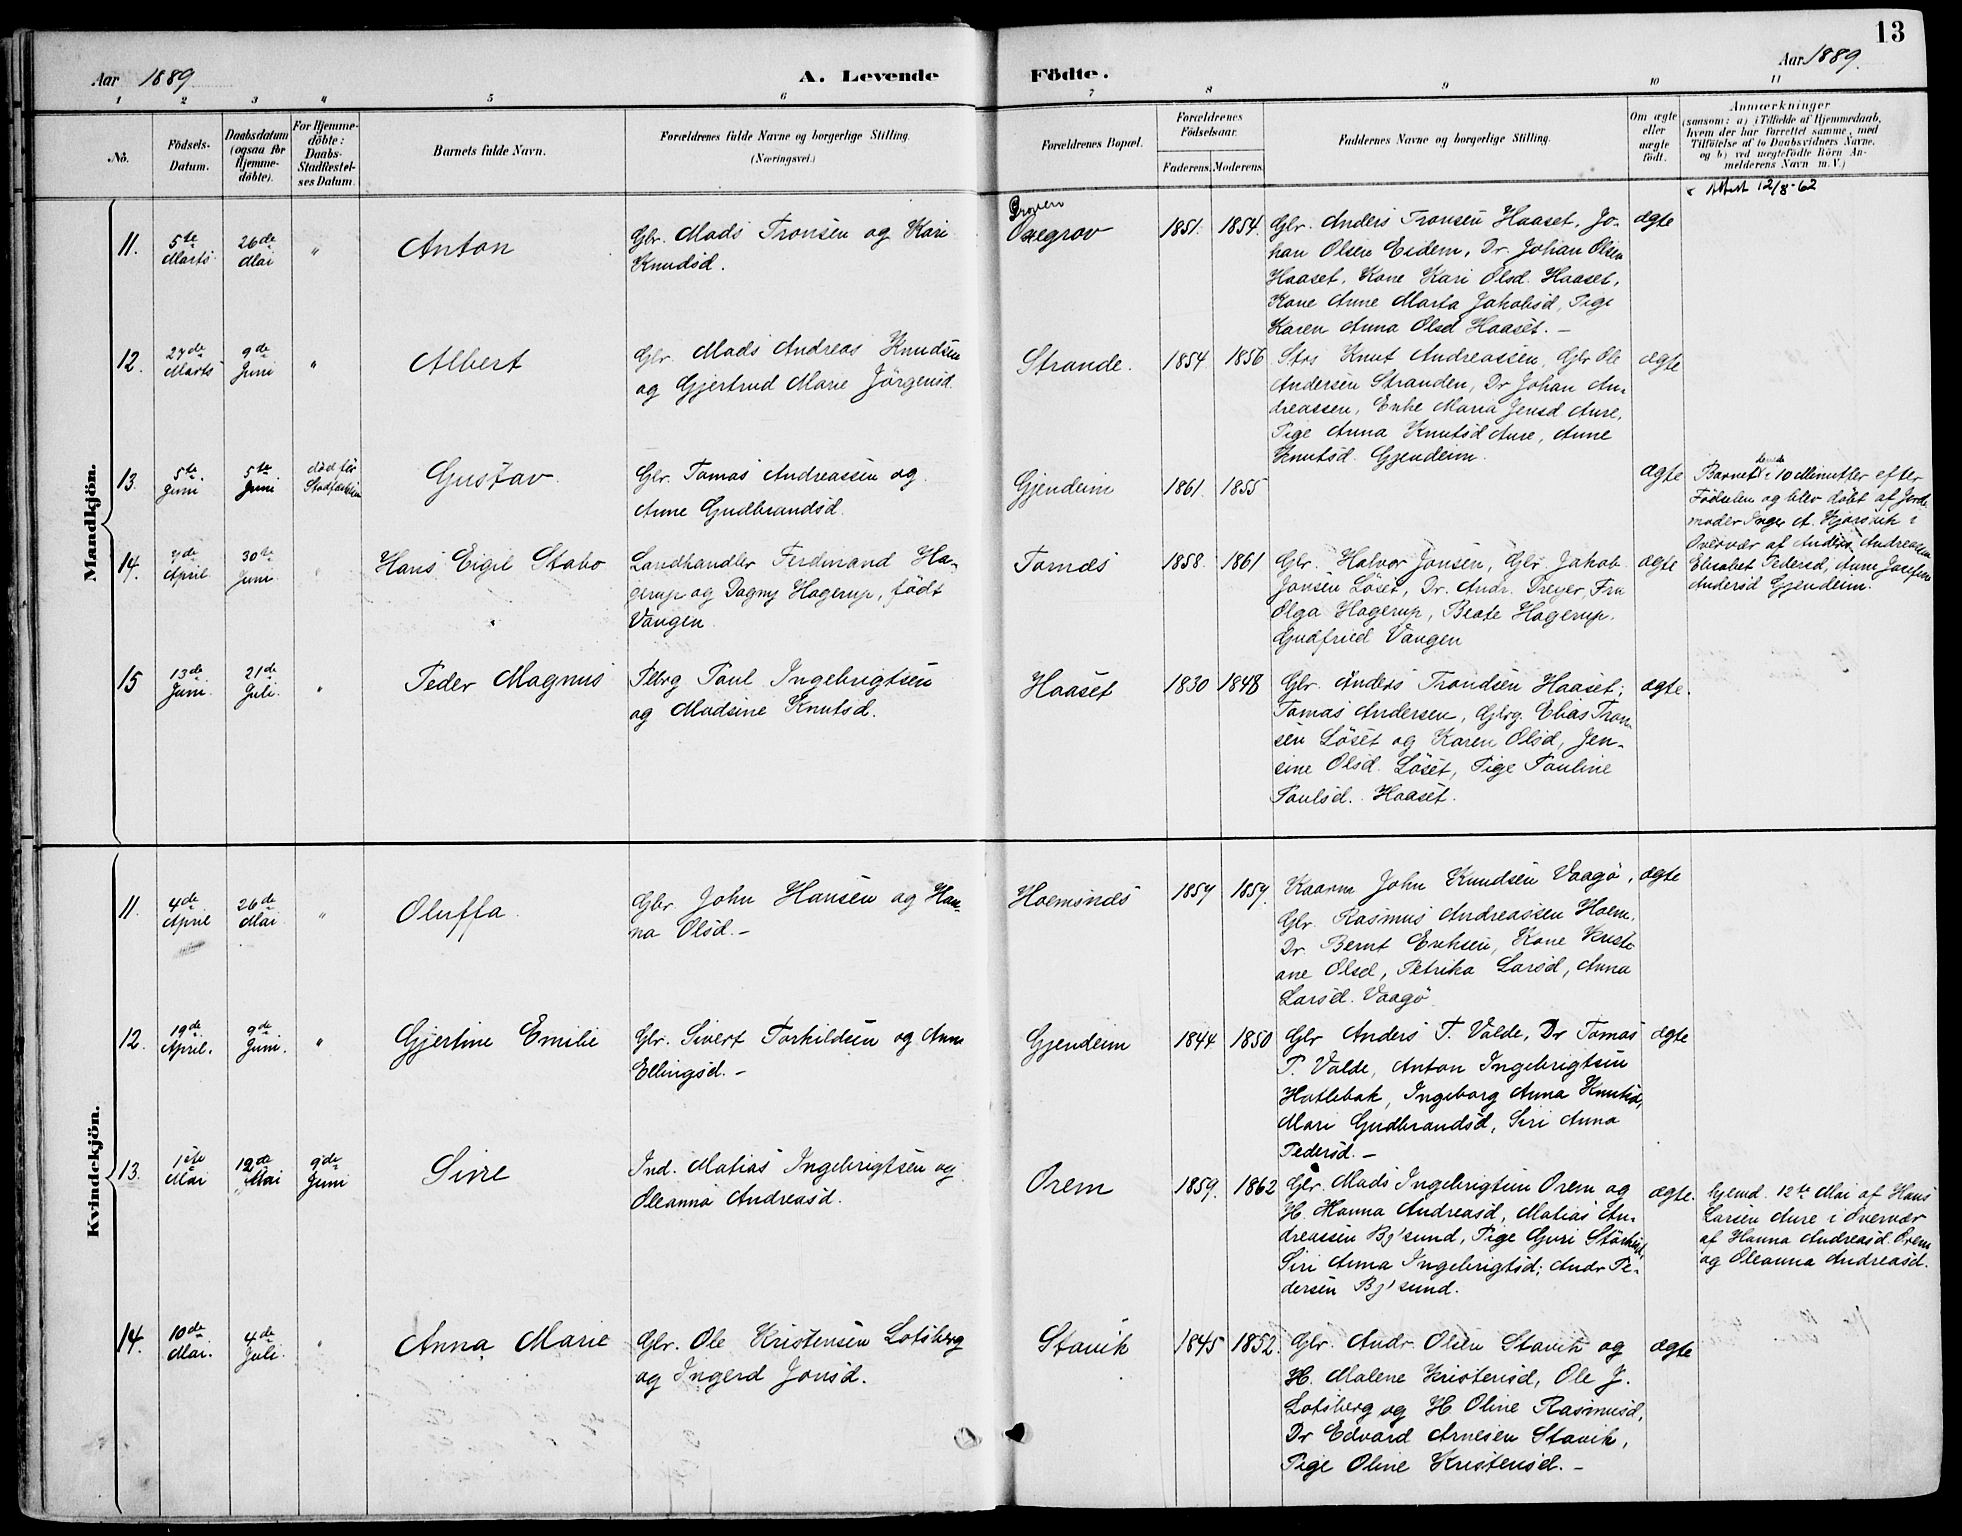 13
Aar 1889 A. Levende Födte. Aar 1889.
1 2 3 4 5 6 7 8 9 10 11
No.
Födsels-
Datum.
Daabsdatum
(ogsaa for
Hjemme-
döbte).
For Hjemme-
döbte:
Daabs-
Stadfæstel-
ses Datum.
Barnets fulde Navn.
Forældrenes fulde Navne og borgerlige Stilling.
(Næringsvei.)
Forældrenes Bopæl.
Forældrenes
Födselsaar.
Faderens. Moderens.
Faddernes Navne og borgerlige Stilling.
Om ægte
eller
uægte
födt.
Anmærkninger
(saasom: a) i Tilfælde af Hjemmedaab,
hvem der har forrettet samme, med
Tilföielse af to Daabsvidners Navne,
og b) ved uægtefödte Börn An-
melderens Navn m.V.)
Attest 12/8-62
Mandkjön.
11.
5te
Marts
26de
Mai
"
Anton
Gbr. Mads Tronsen og Kari
Knudsd.
Oxegrov
1851. 1854.
Gbr. Anders Tronsen Haaset, Jo-
han Olsen Eidem, Dr. Johan Olsen
Haaset, Kone Kari Olsd. Haaset,
Kone Anne Marta Jakobsd, Pige
Karen Anna Olsd Haaset. –
ægte
12.
27de
Marts
9de
Juni
"
Albert
Gbr. Mads Andreas Knudsen
og Gjertrud Marie Jörgensd.
Strande.
1854. 1856
Knut Andreassen, Gbr Ole
Andersen Stranden, Dr Johan An-
dreassen, Enke Maria Jensd Aure,
Pige Anna Knutsd Aure, Anne
Knutsd. Gjendeim.
ægte
13.
5te
Juni
5te
Juni
död før
Gustav
Gbr. Tomas Andreassen og
Anne Gudbrandsd.
Gjendeim
1861. 1855
ægte
Barnet døde 10 Minutter efter
Fødselen og blev døbt af Jord-
moder Inger A. i
Overvær af Anders Andreassen
Elisabet Pedersd, Anne Josefine
Andersd Gjendeim.
14.
April
30te
Juni
"
Hans Eigil Stabo
Landhandler Ferdinand Ha-
gerup og Dagny Hagerup, født
Vangen
Tornæs
1858. 1861
Gbr. Halvor Jonsen, Gbr. Jakob
Jonsen Löset, Dr. Andr. Dreyer, Fru
Olga Hagerup, Beate Hagerup,
Gudfried Vangen
ægte
15
13de
Juni.
21de
Juli.
"
Peder Magnus
Paul Ingebrigtsen
og Madsine Knutsd.
Haaset
1830 1848
Gbr. Anders Trondsen Haaset,
Tomas Andersen, Gbrg. Elias Tron-
sen Löset og Karen Olsd, Jen-
sine Olsd. Löset, Pige Pauline
Paulsd. Haaset.
ægte.
Kvindekjön.
11.
4de
April
26de
Mai
"
Oluffa.
Gbr. John Hansen og Han-
na Olsd. –
Holmsnæs
1857 1857.
Kaarm John Knudsen Vaagö,
Gbr. Rasmus Andreassen Holm,
Dr. Bernt Eriksen, Kone Kristi-
ane Olsd, Petrika Larsd, Anna
Larsd. Vaagö
ægte
12.
19de
April.
9de
Juni.
"
Gjertine Emilie
Gbr. Sivert Torkildsen og Anne
Ellingsd. –
Gjendeim
1844 1850
Gbr Anders T. Valde, Dr Tomas
T. Valde, Anton Ingebrigtsen
Hatlebak, Ingeborg Anna Knutsd,
Mari Gudbrandsd, Siri Anna
Pedersd. –
ægte
13.
1ste
Mai
12de
Mai
9de
Juni
Sine
Ind. Matias Ingebrigtsen og
Oleanna Andreasd.
Orem
1859. 1862
Gbr. Mads Ingebrigtsen Orem og
H. Hanna Andreasd, Matias An-
dreassen Bj'sund, Pige Guri Störkersd,
Siri Anna Ingebrigtsd; Andr Pe-
dersen Bj'sund.
ægte.
hjemd. 12te Mai af Hans
Larsen Aure i Overvær
af Hanna Andreasd. Orem
og Oleanna Andreasd.
14.
10de
Mai.
4de
Juli.
"
Anna Marie
Gbr. Ole Kristensen Lotsberg
og Ingerd Jonsd.
Stavik
1845 1852.
Gbr. Andr. Olsen Stavik og
H. Malene Kristensd, Ole J.
Lotsberg og H Oline Rasmusd,
Dr Edvard Arnesen Stavik,
Pige Oline Kristensd. –
ægte